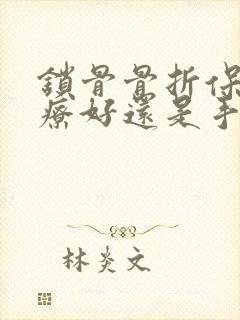 鎖骨骨折保
療好還是手
林炎文